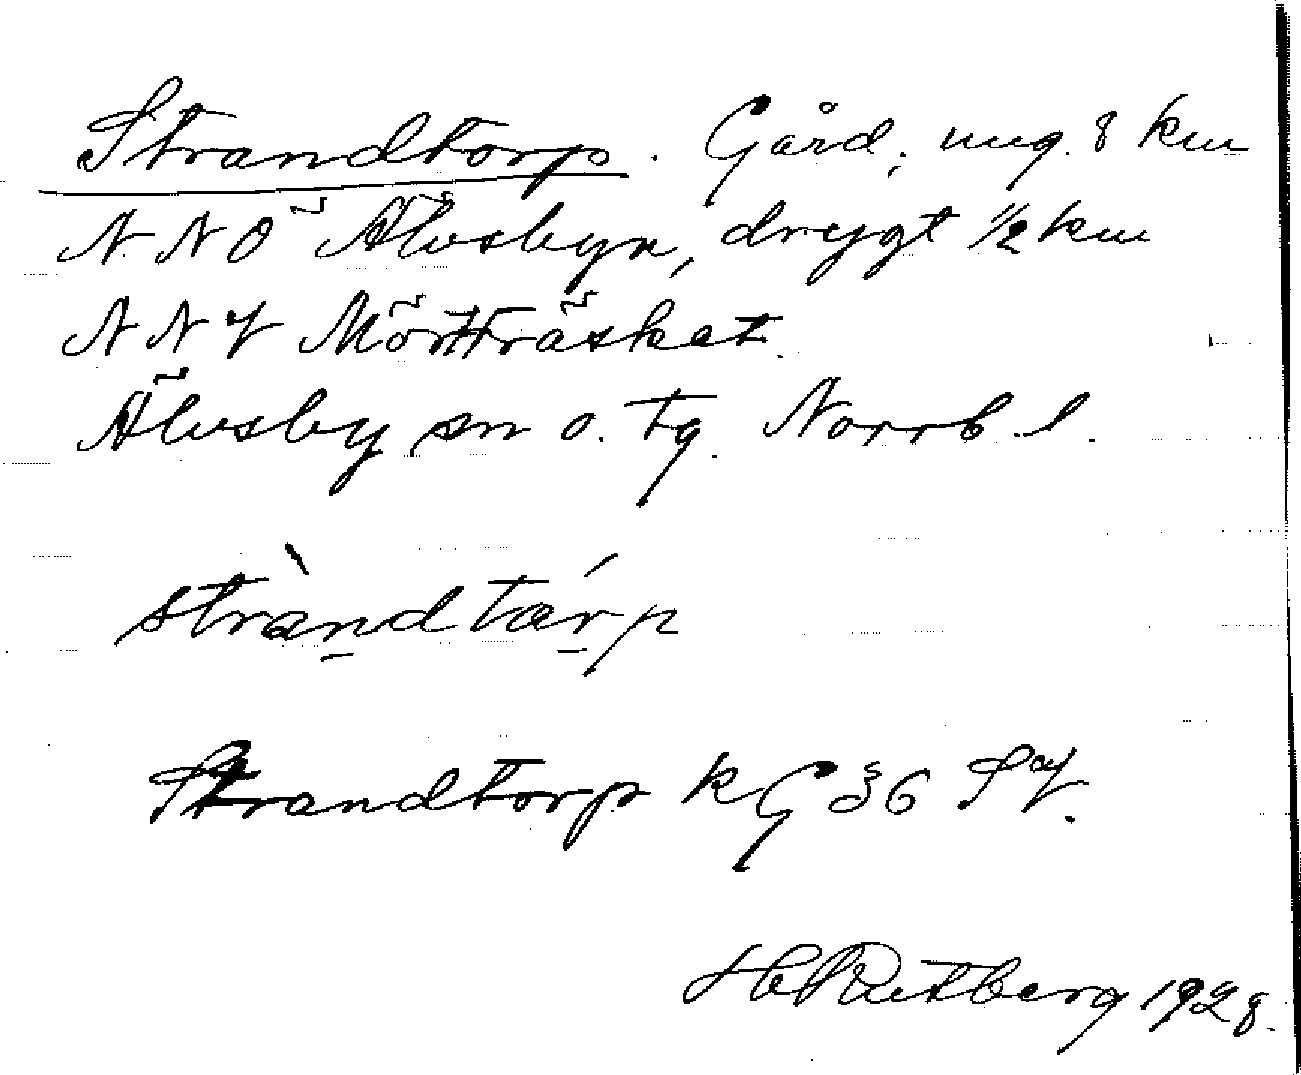 Strandtorp. Gård, ung. 8 km
NNÖ Älvsbyn, drygt 1/2 km
NNV Mörtträsket.
Älvsby sn o. tg. Norrb. l.
stràndtárp
Strandtorp kG 36 SV.
H Rutberg 1928.